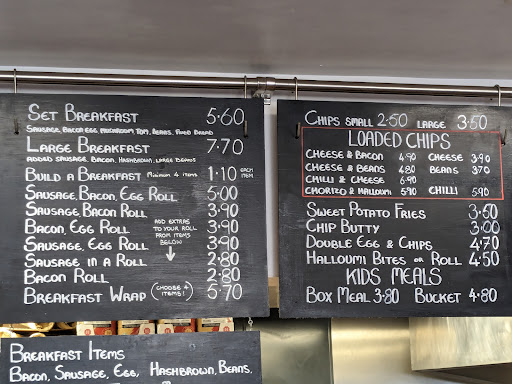 Set Breakfast 5.60
Sausage, Bacon Egg Mushroom Tom, Beans, Fried Bread
Large Breakfast 7.70
Added Sausage, Bacon, Hashbrown, Large Beans
Build a Breakfast Minimum 4 items 1.10 each item
Sausage, Bacon, Egg Roll 5.00
Sausage, Bacon Roll 3.90
Bacon, Egg Roll 3.90
Sausage, Egg Roll 3.90
Sausage in a Roll 2.80
Bacon Roll 2.80
Breakfast Wrap (Choose 4 items!) 5.70
Add extras
to your roll
from items
below
Chips small 2.50 large 3.50
Loaded Chips
Cheese & Bacon 4.90 Cheese 3.90
Cheese & Beans 4.80 Beans 3.70
Chilli & Cheese 6.90
Chorizo & Halloumi 5.90 Chilli 5.90
Sweet Potato Fries 3.50
Chip Butty 3.00
Double Egg & Chips 4.70
Halloumi Bites or Roll 4.50
Kids Meals
Box Meal 3.80 Bucket 4.80
Breakfast Items
Bacon, Sausage, Egg, Hashbrown, Beans,